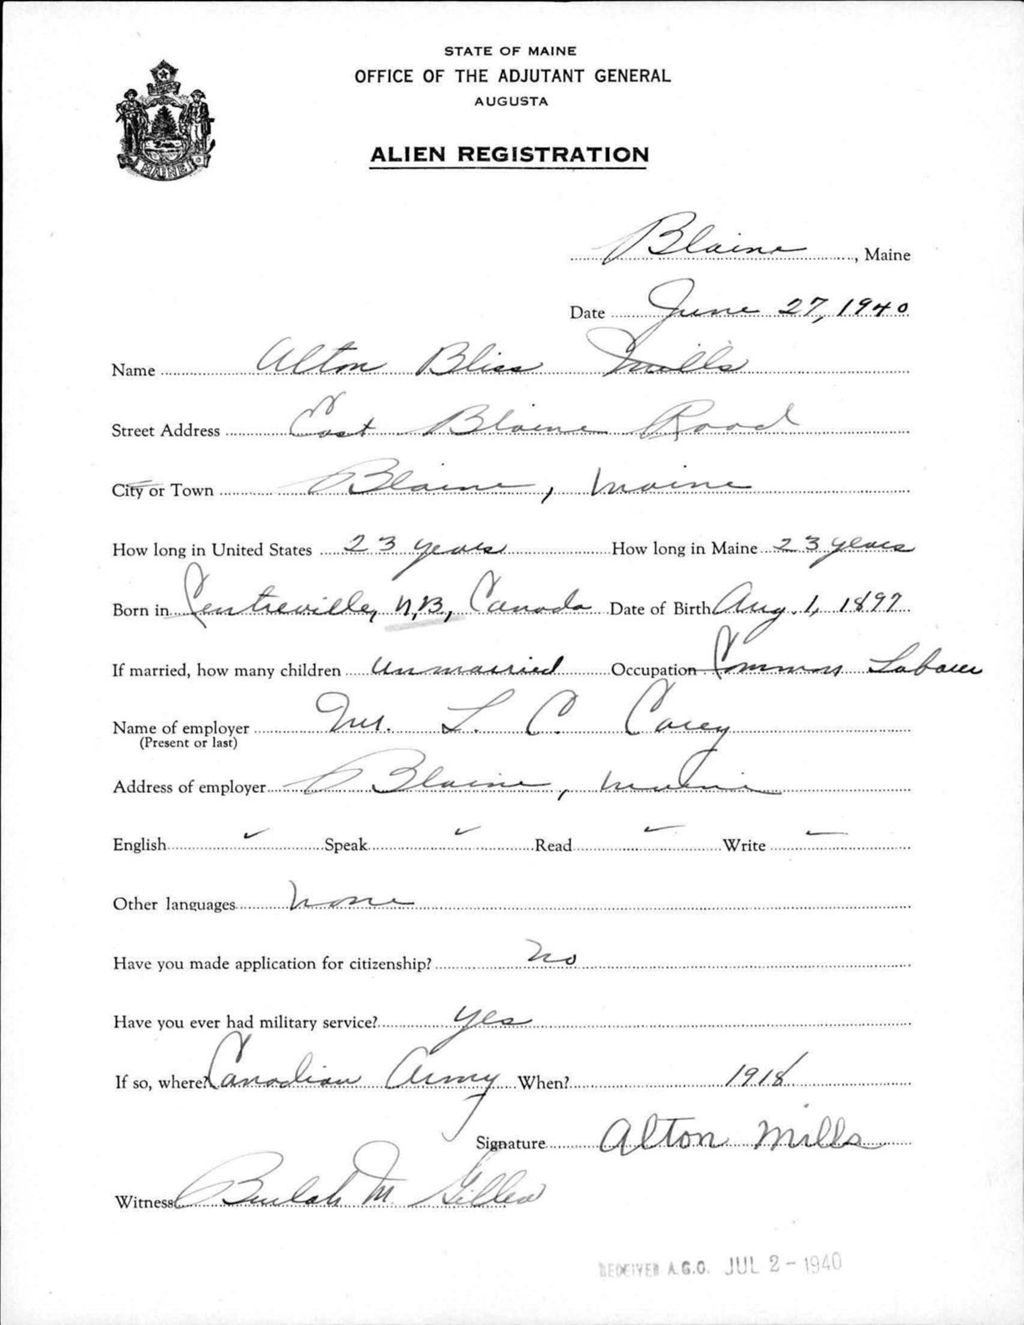 STATE OF MAINE
OFFICE OF THE ADJUTANT GENERAL
AUGUSTA
ALIEN REGISTRATION
MAINE
Blaine, Maine
Date June 27, 1940
Name Alton Bliss Mills
Street Address East Blaine Road
City or Town Blaine, Maine
How long in United States 23 years How long in Maine 23 years
Born in Centreville, N.B., Canada Date of Birth Aug. 1, 1897
If married, how many children Unmarried Occupation Common Laborer
Name of employer Mr. L. C. Carey
(Present or last)
Address of employer Blaine, Maine
English ✓ Speak ✓ Read ✓ Write ✓
Other languages None
Have you made application for citizenship? No
Have you ever had military service? Yes
If so, where? Canadian Army When? 1918
Signature Alton Mills
Witness Beulah M.
RECEIVED A.G.O. JUL 2 - 1940